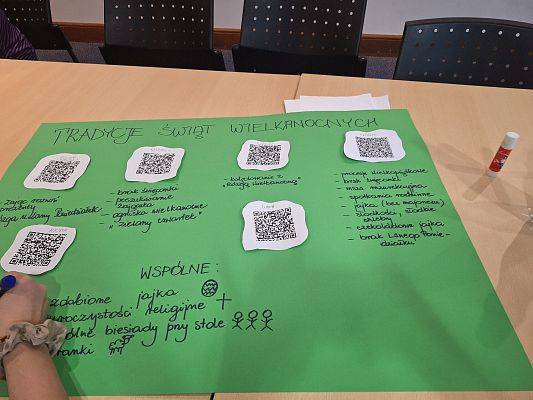 TRADYCJE ŚWIĄT WIELKANOCNYCH
- zając
- brak święconki
- poszukiwanie
zajączka
- ogniska wielkanocne
- "zielony czwartek"
- kolędowanie z
"Księgą wielkanocną"
- procesje wielkopiątkowe
- brak święconki
- msza rezurekcyjna
- spotkania rodzinne
- jajka (bez majonezu)
- słodkości, słodkie
chleby
- czekoladowe jajka
- brak lanego Ponie-
działku
WSPÓLNE:
zdobione jajka
uroczystości religijne
biesiady przy stole